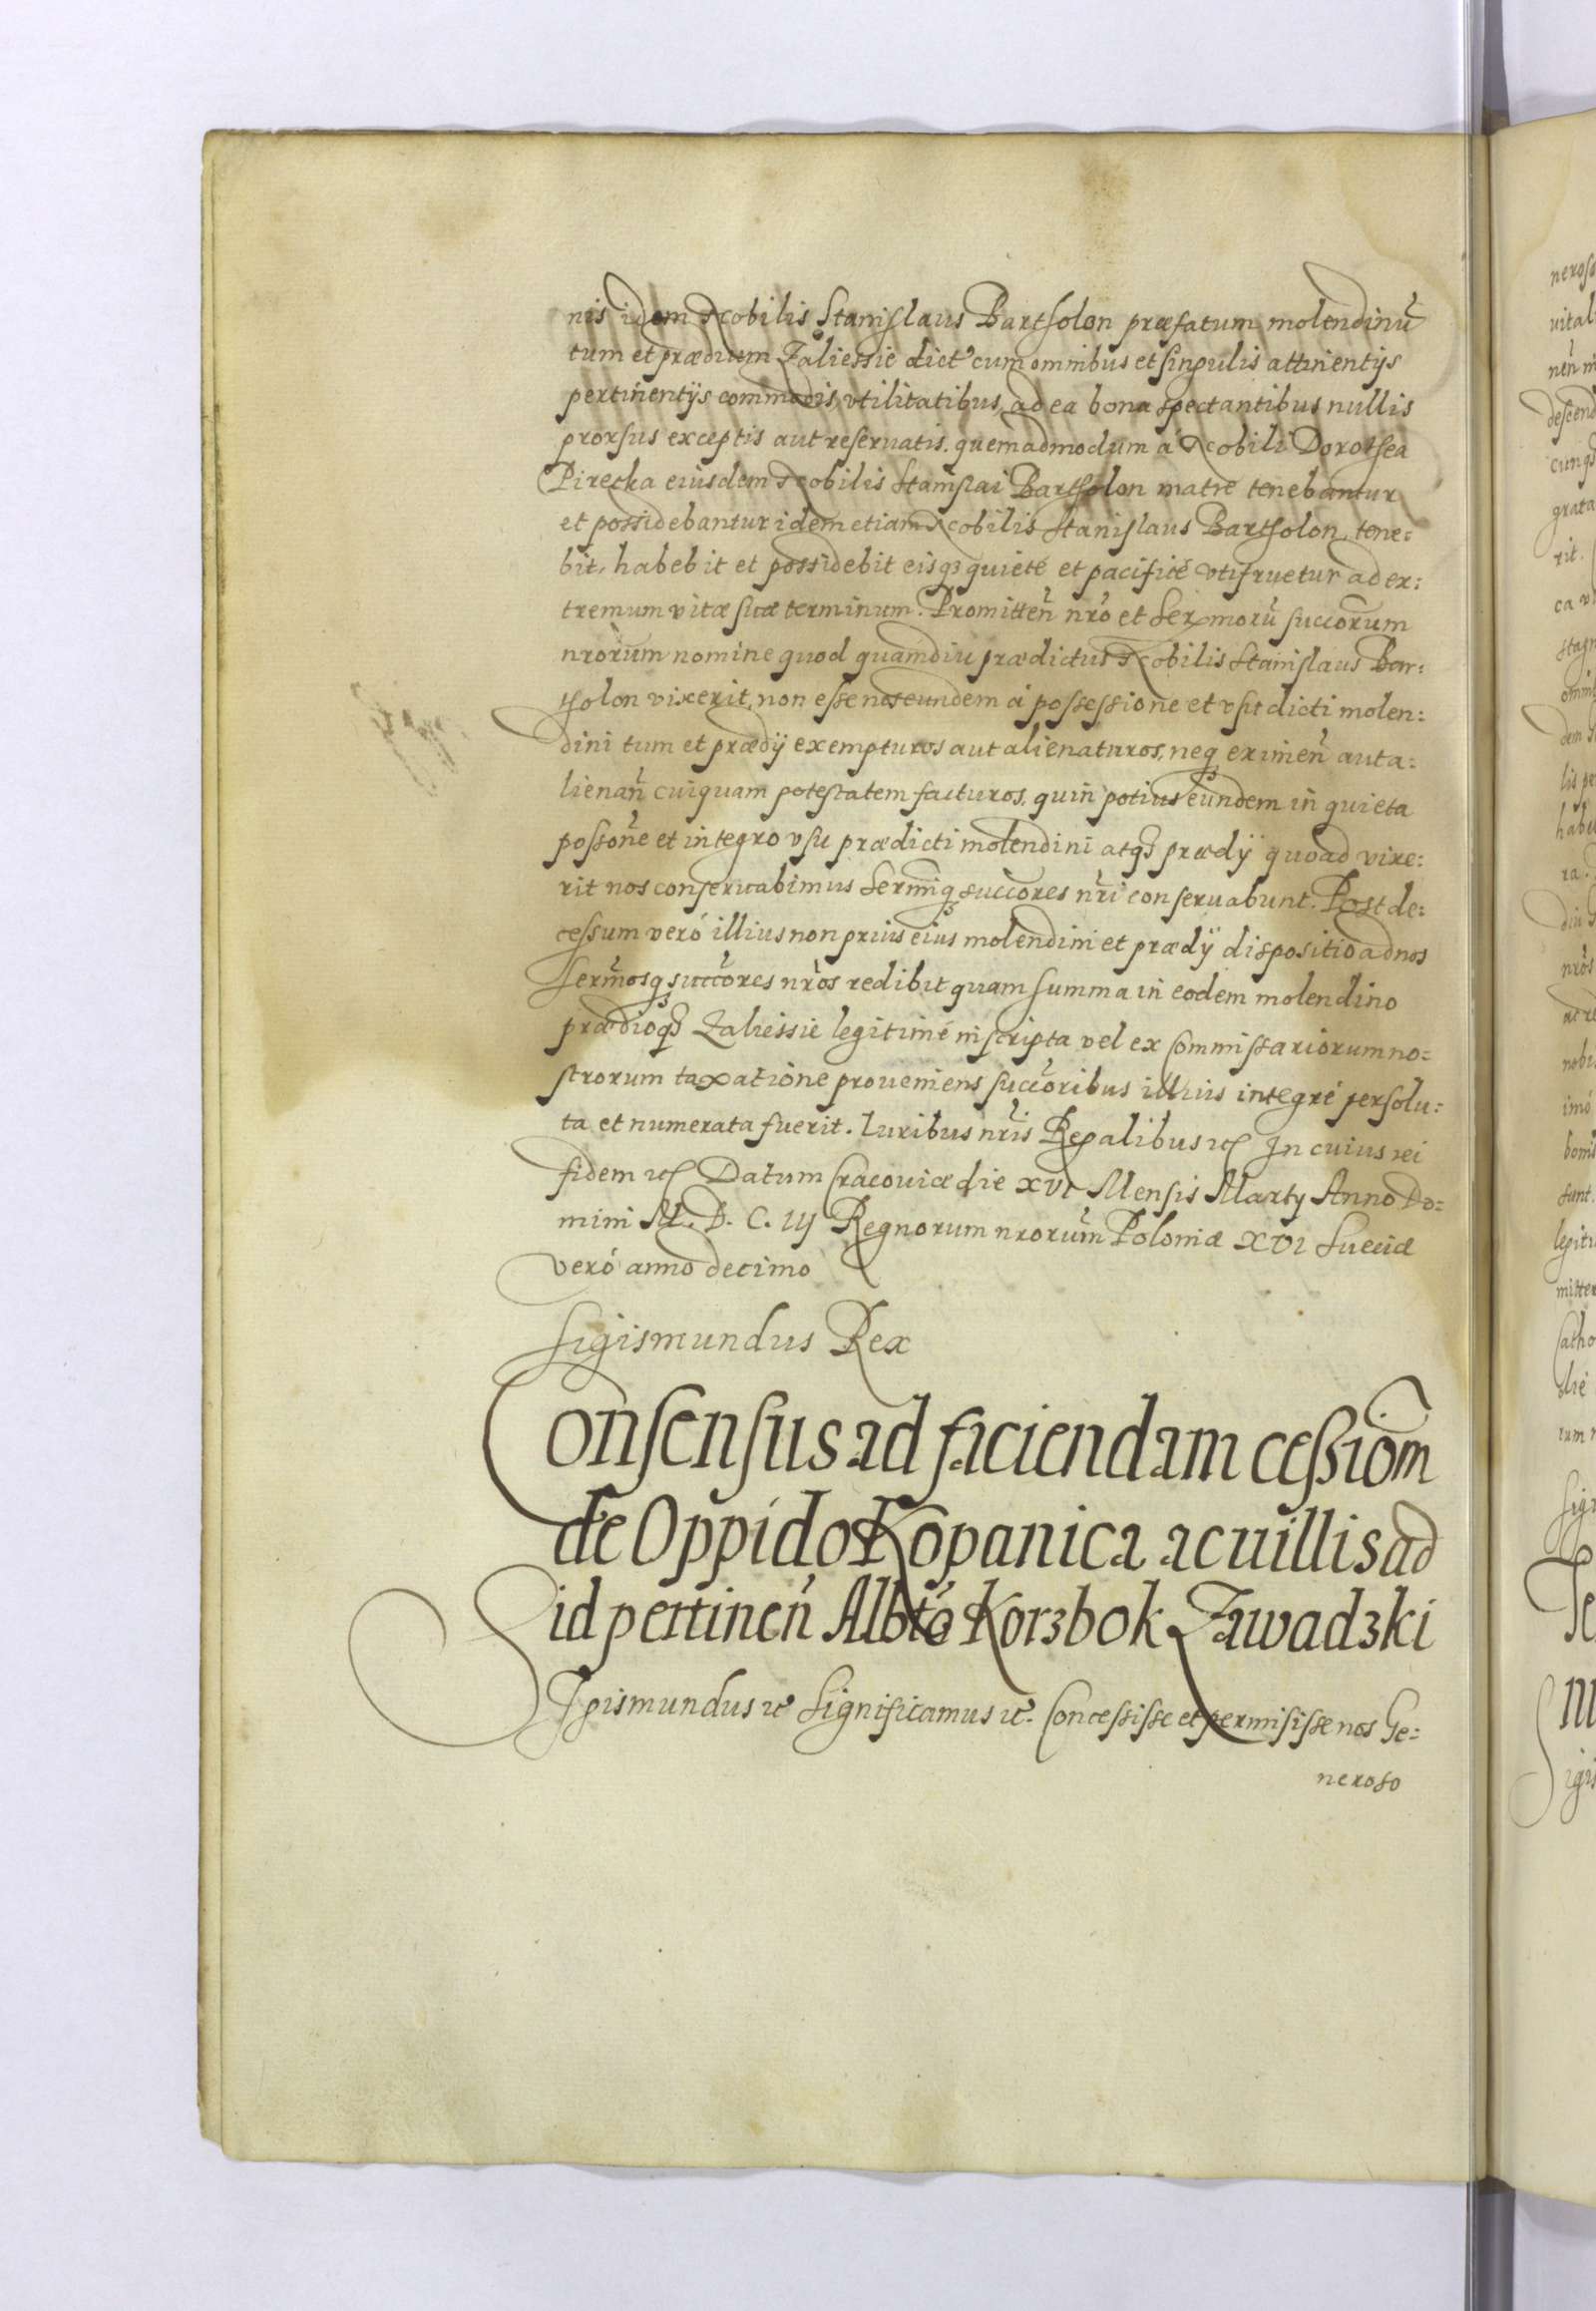 nis idem Nobilis Stanislaus Bartholon præfatum molendinū
tum et prædium Zaliessie dict' cum omnibus et singulis attinentijs
pertinentijs commodis, vtilitatibus, ad ea bona spectantibus nullis
prorsus exceptis aut reseruatis. quemadmodum à Nobili Dorothea
Pirecka eiusdem Nobilis Stanislai Bartholon matre tenebantur
et possidebantur idem etiam Nobilis Stanislaus Bartholon, tene=
bit, habebit et possidebit eisq3 quietè et pacificè vtifruetur ad ex:
tremum vitæ suæ terminum. Promitten̄ nr̄o et Sermorū succorum
nrorum nomine quod quamdiu prædictus Nobilis Stanislaus Bar:
tholon vixerit, non esse nos eundem à possessione et vsu dicti molen:
dini tum et prædij exempturos aut alienaturos, neq3 eximen̄ aut a:
lienan̄ cuiquam potestatem facturos, quin potius eundem in quieta
posson̄e et integro vsu prædicti molendini atq3 prædij quoad vixe:
rit nos conseruabimus Sermiq3 succores nr̄i conseruabunt. Post de:
cessum verò illius non prius eius molendini et prædij dispositio ad nos
Sermosq3 succores nr̄os redibit quam summa in eodem molendino
prædioq3 Zaliessie legitimè inscripta vel ex Commissariorum no=
strorum taxatione proueniens succoribus illius integrè persolu:
ta et numerata fuerit. Iuribus nr̄is Regalibus etc In cuius rei
fidem etc Datum Cracouiæ die XVI Mensis Martij Anno Do=
mini M. D. C. III Regnorum nrorum Poloniæ XVI Sueciæ
verò anno decimo
Sigismundus Rex
Consensus ad faciendam cessiom
de Oppido Kopanica ac uillis ad
id pertinen̄ Albto Korzbok Zawadzki
Sigismundus etc Significamus etc. Concessisse et permisisse nos Ge=
neroso